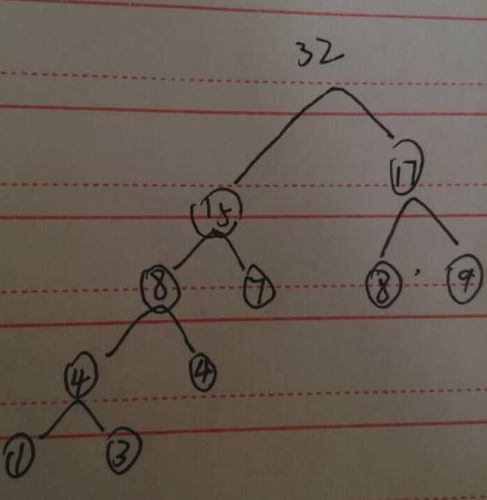 32
17
15
8 7 8 9
4 4
1 3